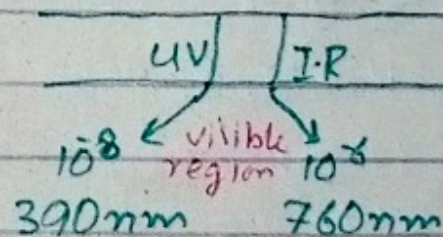 UV I.R
10^-8 visible 10^-6
region
390nm 760nm